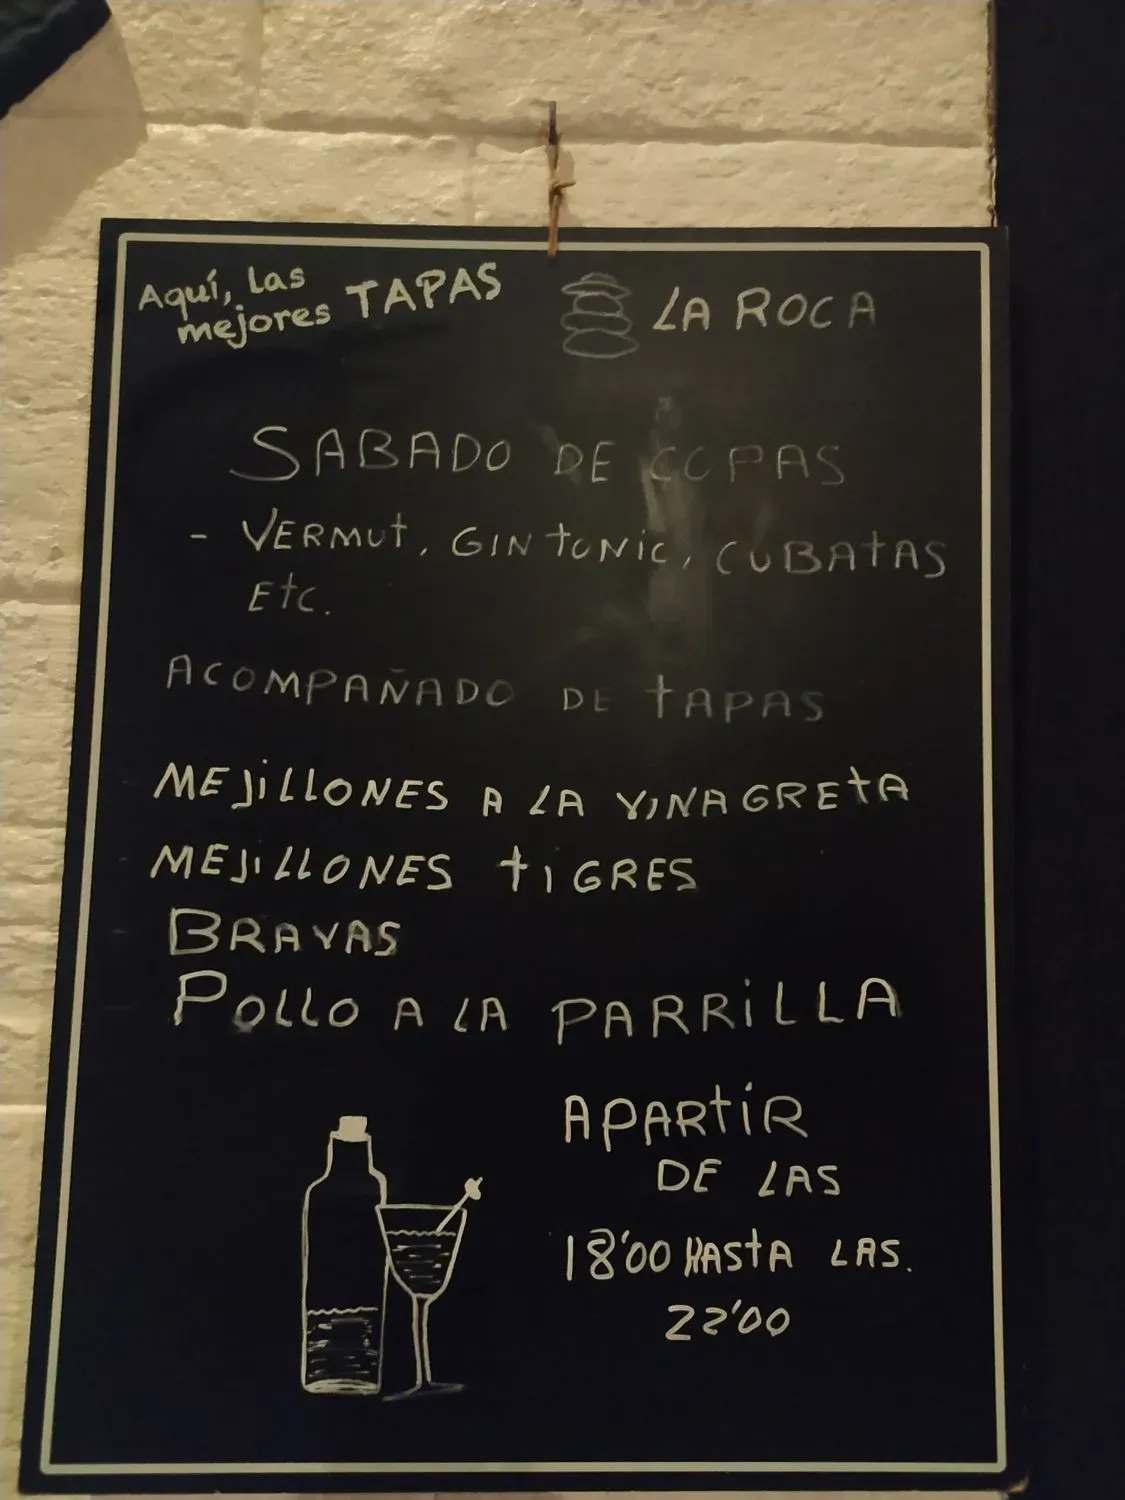 Aquí, las
mejores TAPAS
LA ROCA
SABADO DE COPAS
- VERMUT, GINTONIC, CUBATAS
ETC.
ACOMPAÑADO DE TAPAS
MEJILLONES A LA VINAGRETA
MEJILLONES TIGRES
BRAVAS
POLLO A LA PARRILLA
APARTIR
DE LAS
18'00 HASTA LAS.
22'00